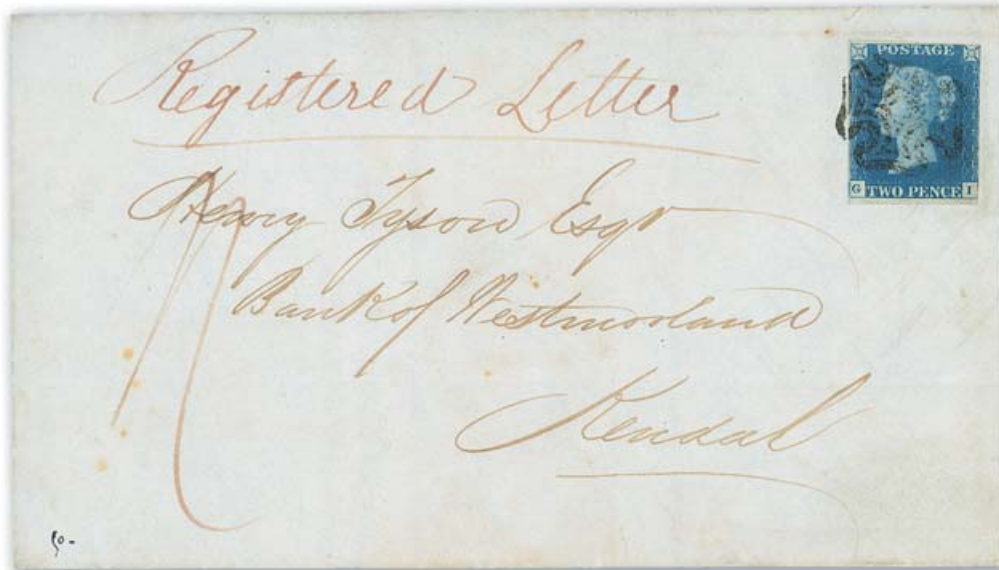 Registered Letter
POSTAGE
G TWO PENCE I
Henry Tyson Esqr
Bank of Westmorland
Kendal